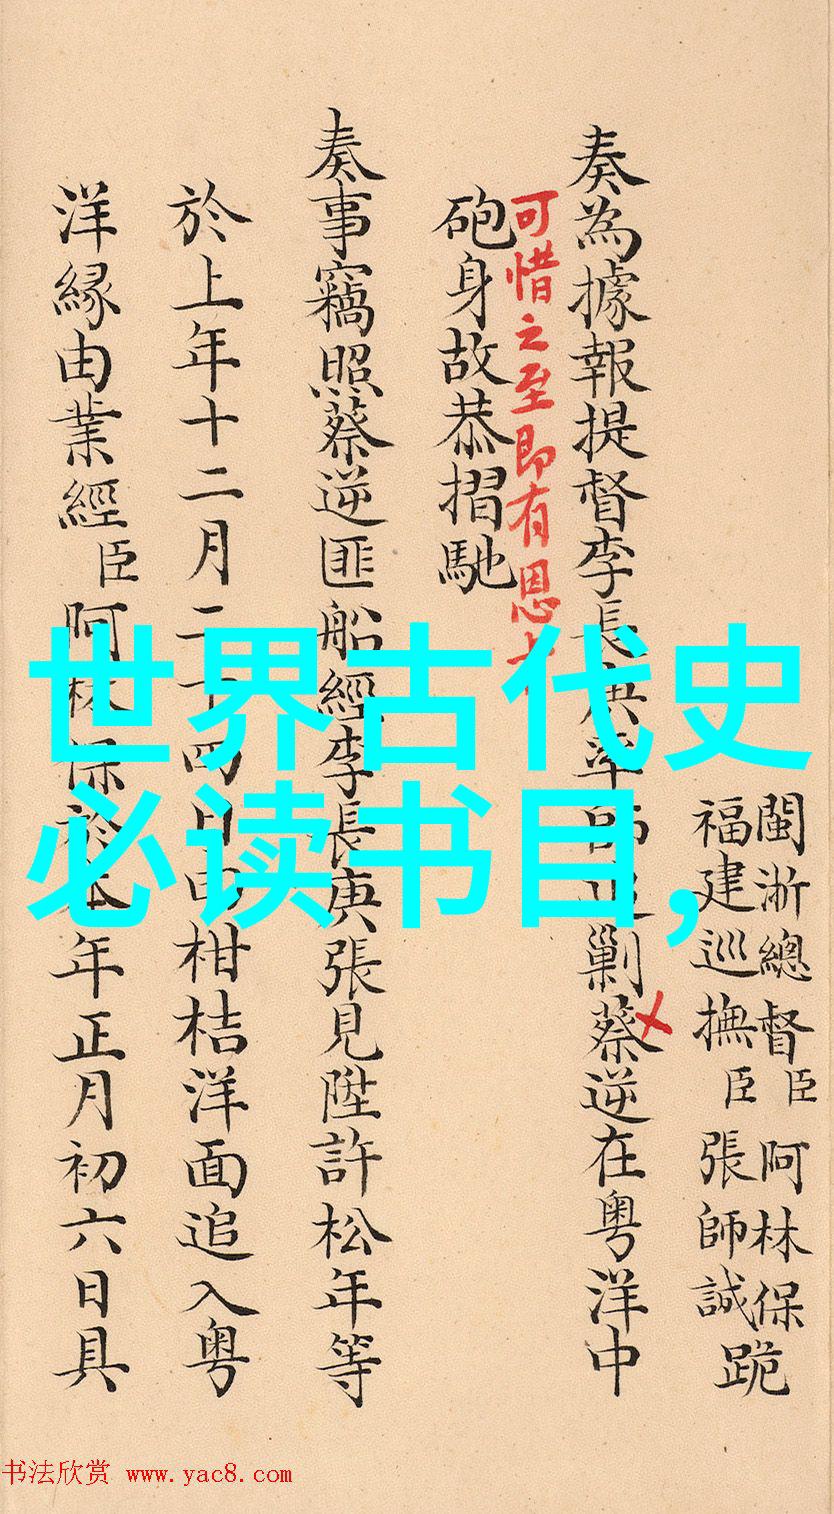 世界古代史
必读书目,
閩浙總督臣阿林保
福建巡撫臣張師誠
跪
奏為據報提督李長庚率師追剿蔡逆在粤洋中
可惜之至即有恩
砲身故恭摺馳
奏事竊照蔡逆匪船經李長庚張見陞許松年等
於上年十二月二十四日由柑桔洋面追入粤
洋緣由業經臣阿林保於本年正月初六日具
书法欣赏 www.yac8.com